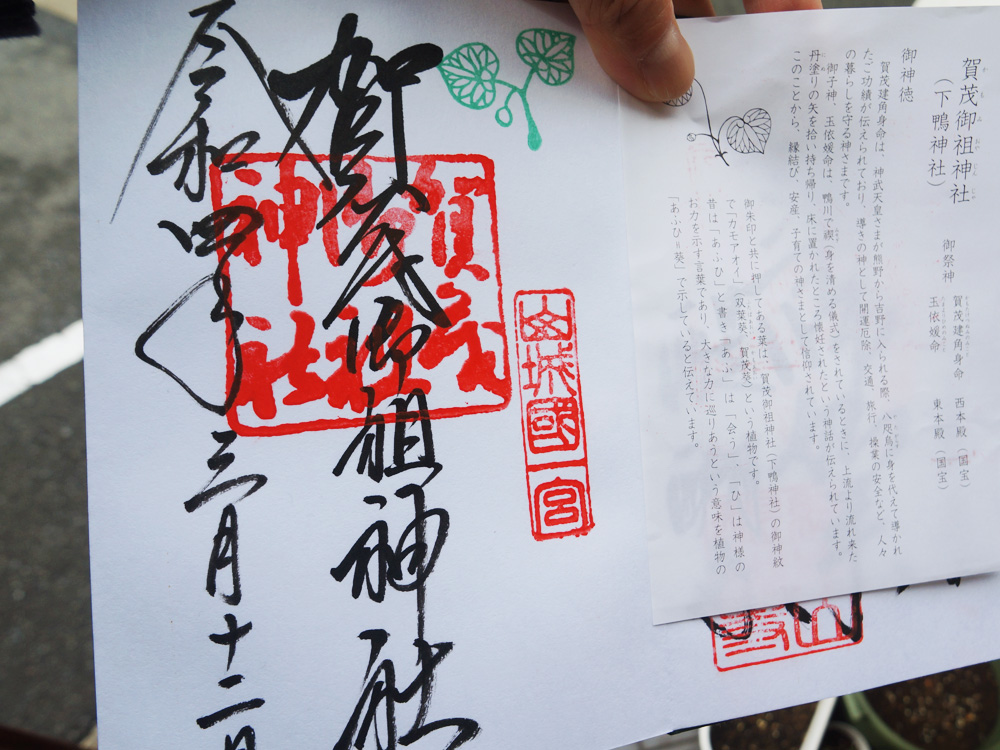 賀茂御祖神社
(下鴨神社)
御祭神
賀茂建角身命 西本殿(国宝)
玉依媛命 東本殿(国宝)
御神徳
賀茂建角身命は、神武天皇さまが熊野から吉野に入られる際、八咫烏に身を代えて導かれ
たご功績が伝えられており、導きの神として開運厄除、交通、旅行、操業の安全など、人々
の暮らしを守る神さまです。
御子神、玉依媛命は、鴨川で禊(身を清める儀式)をされているときに、上流より流れ来た
丹塗りの矢を拾い持ち帰り、床に置かれたところ懐妊されたという神話が伝えられています。
このことから、縁結び、安産、子育ての神さまとして信仰されています。
御朱印と共に押してある葉は、賀茂御祖神社(下鴨神社)の御神紋
で「カモアオイ」(双葉葵、賀茂葵)という植物です。
昔は「あふひ」と書き「あふ」は「会う」、「ひ」は神様の
お力を示す言葉であり、大きな力に巡りあうという意味を植物の
「あふひ=葵」で示していると伝えています。
山城國一宮
賀茂御祖神社
賀茂御祖神社
令和四年三月十二日